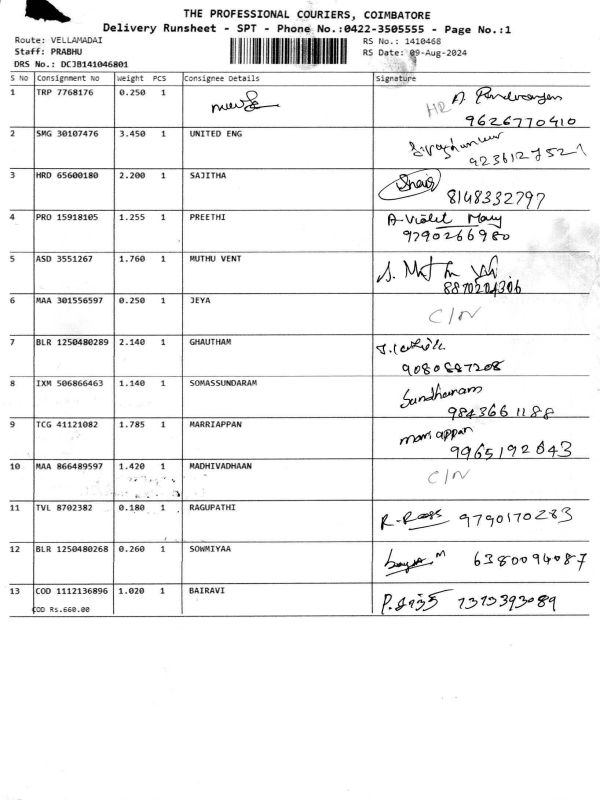 THE PROFESSIONAL COURIERS, COIMBATORE
Delivery Runsheet - SPT - Phone No.:0422-3505555 - Page No.:1
Route: VELLAMADAI
RS No.: 1410468
Staff: PRABHU
RS Date: 09-Aug-2024
DRS No.: DCJB141046801
S No Consignment No Weight PCS Consignee Details Signature
1 TRP 7768176 0.250 1
9626770410
2 SMG 30107476 3.450 1 UNITED ENG
9236127521
3 HRD 65600180 2.200 1 SAJITHA
8148332797
4 PRO 15918105 1.255 1 PREETHI A. Violet Mary
9790266980
5 ASD 3551267 1.760 1 MUTHU VENT
8870204306
6 MAA 301556597 0.250 1 JEYA
C/N
7 BLR 1250480289 2.140 1 GHAUTHAM
9080887208
8 IXM 506866463 1.140 1 SOMASSUNDARAM Sundharam
9843661188
9 TCG 41121082 1.785 1 MARRIAPPAN mariappan
9965192643
10 MAA 866489597 1.420 1 MADHIVADHAAN
C/N
11 TVL 8702382 0.180 1 RAGUPATHI
9790170283
12 BLR 1250480268 0.260 1 SOWMIYAA
6380094087
13 COD 1112136896 1.020 1 BAIRAVI
7373393089
COD Rs.660.00